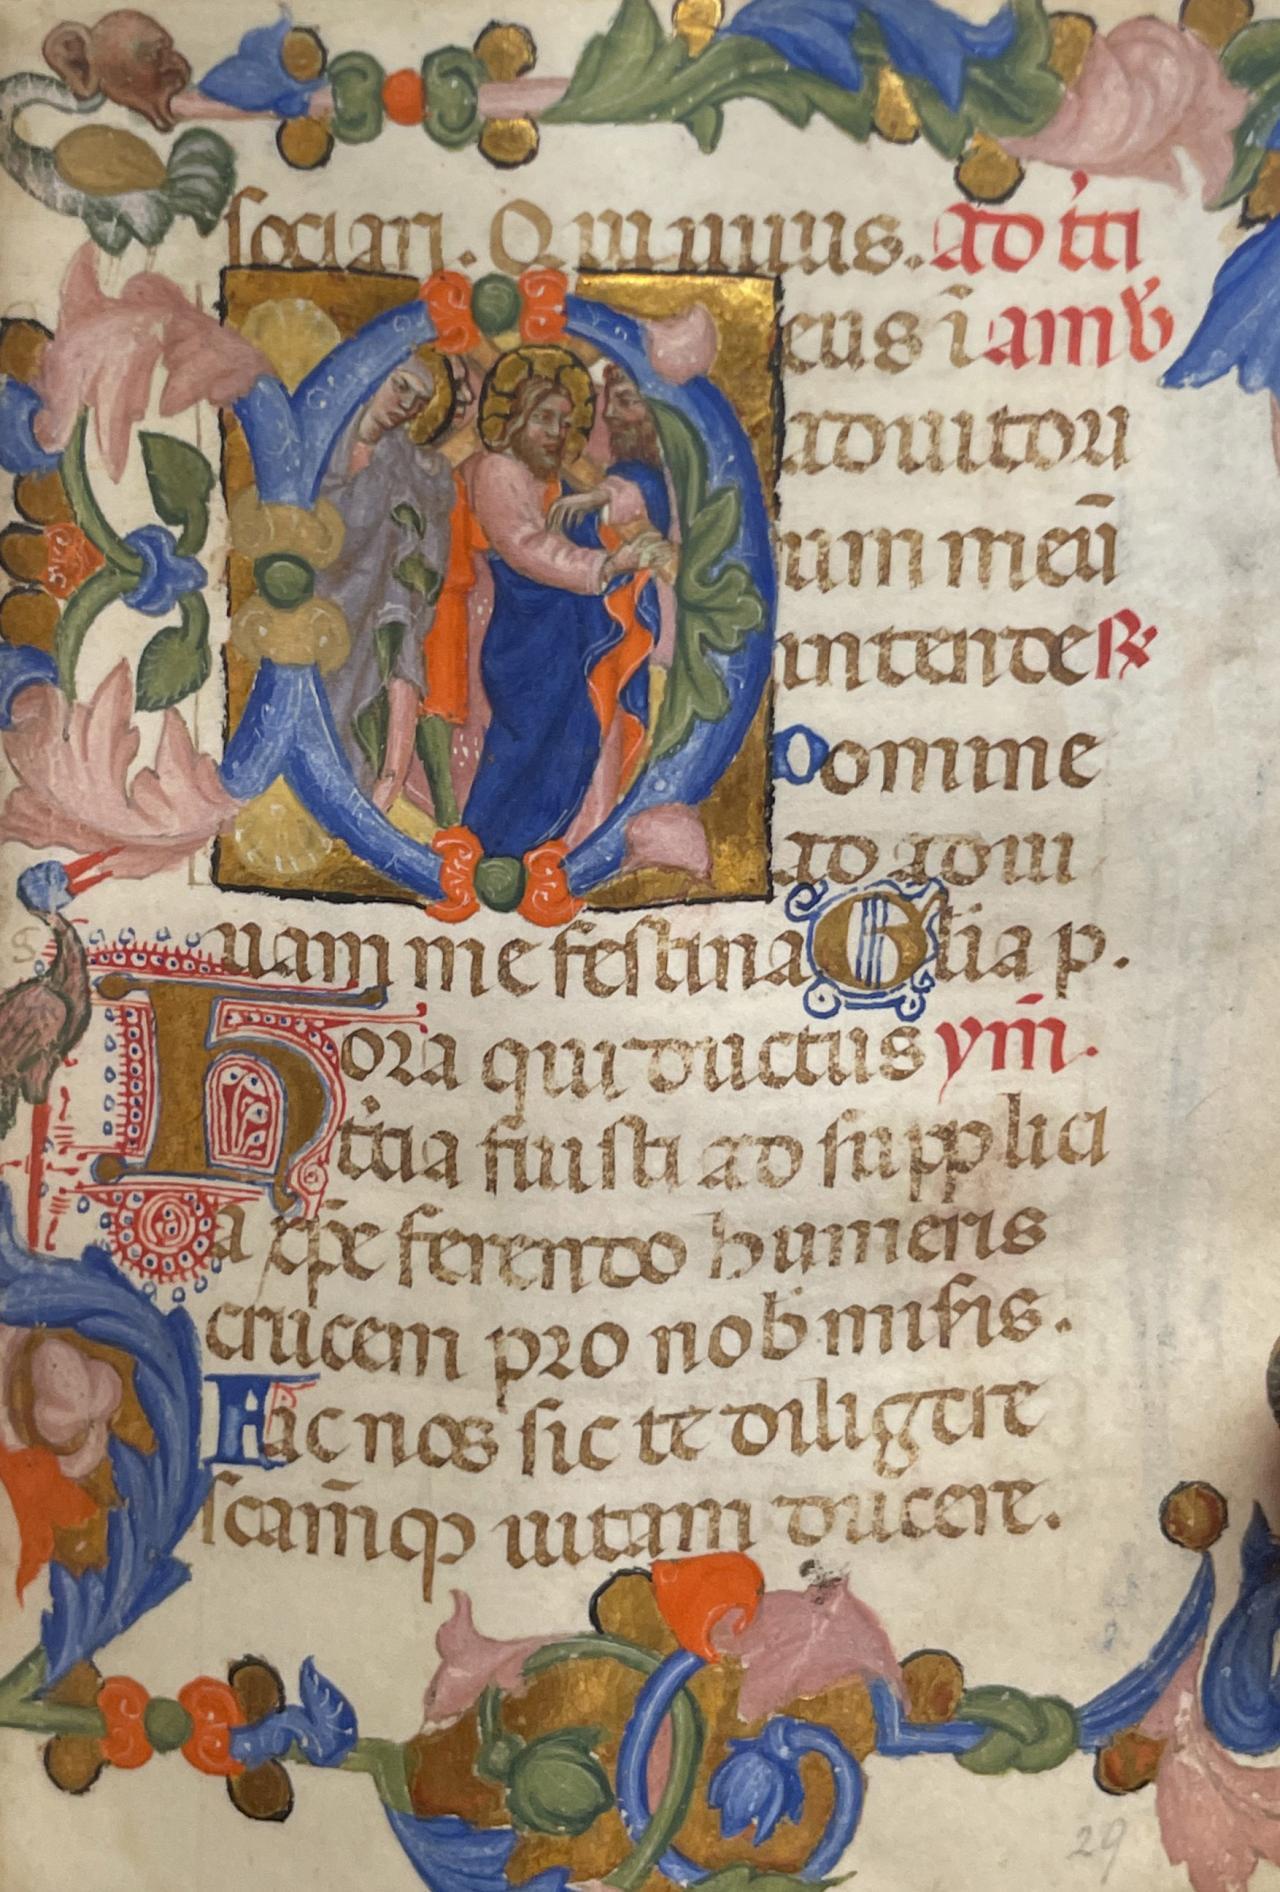 sociari. Qui uiuus. ad t̄ci
Deus ī am̄b
adiutoū
um meū
intende ℞
Domine
ad adiu
uandum me festina Glīa p.
Hora qui ductus ym̄.
t̄cia fuisti ad supplici
a xp̄e ferendo humeris
crucem pro nob̄ miseris.
Fac nos sic te diligere
scam̄qꝫ uitam ducere.
29